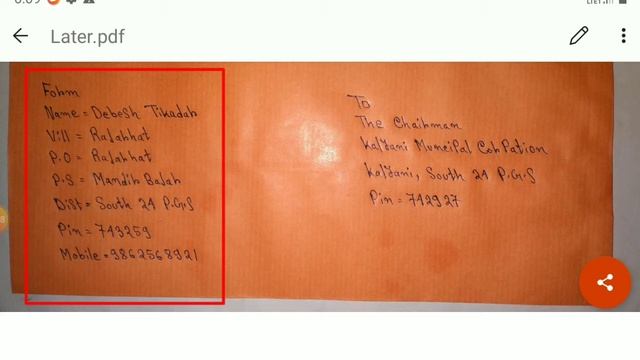 Later.pdf
Fohm
Name = Debesh Tikadah
Vill = Rajahhat
P.O = Rajahhat
P.S = Mandih Bajah
Dist = South 24 P.G.S
Pin = 743259
Mobile = 9862568921
To
The Chaihman
Kalyani Muneipal CohPation
Kalyani, South 24 P.G.S
Pin = 742927